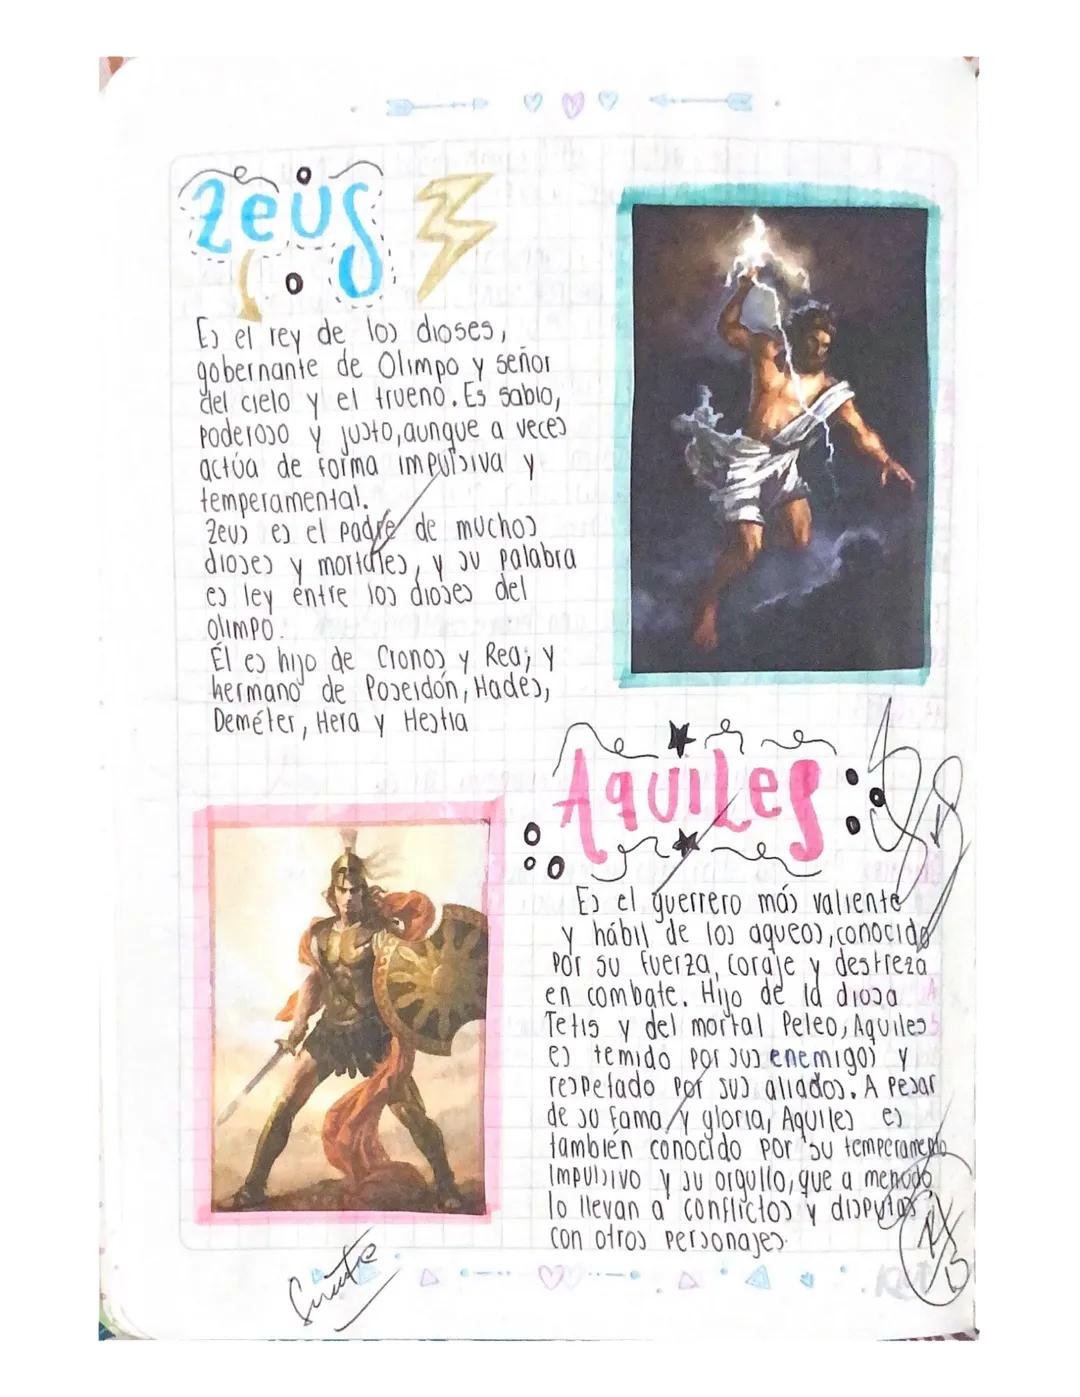 Zeus
Es el rey de los dioses,
gobernante de Olimpo y señor
del cielo y el trueno. Es sabio,
poderoso y justo, aunque a veces
actúa de forma impulsiva y
temperamental.
Zeus es el padre de muchos
dioses y mortales, y su palabra
es ley entre los dioses del
olimpo.
Él es hijo de Cronos y Rea; y
hermano de Poseidón, Hades,
Deméter, Hera y Hestia
Aquiles
Es el guerrero más valiente
y hábil de los aqueos, conocido
por su fuerza, coraje y destreza
en combate. Hijo de la diosa
Tetis y del mortal Peleo, Aquiles
es temido por sus enemigos y
respetado por sus aliados. A pesar
de su fama y gloria, Aquiles es
también conocido por su temperamento
impulsivo y su orgullo, que a menudo
lo llevan a conflictos y disputas
con otros personajes.